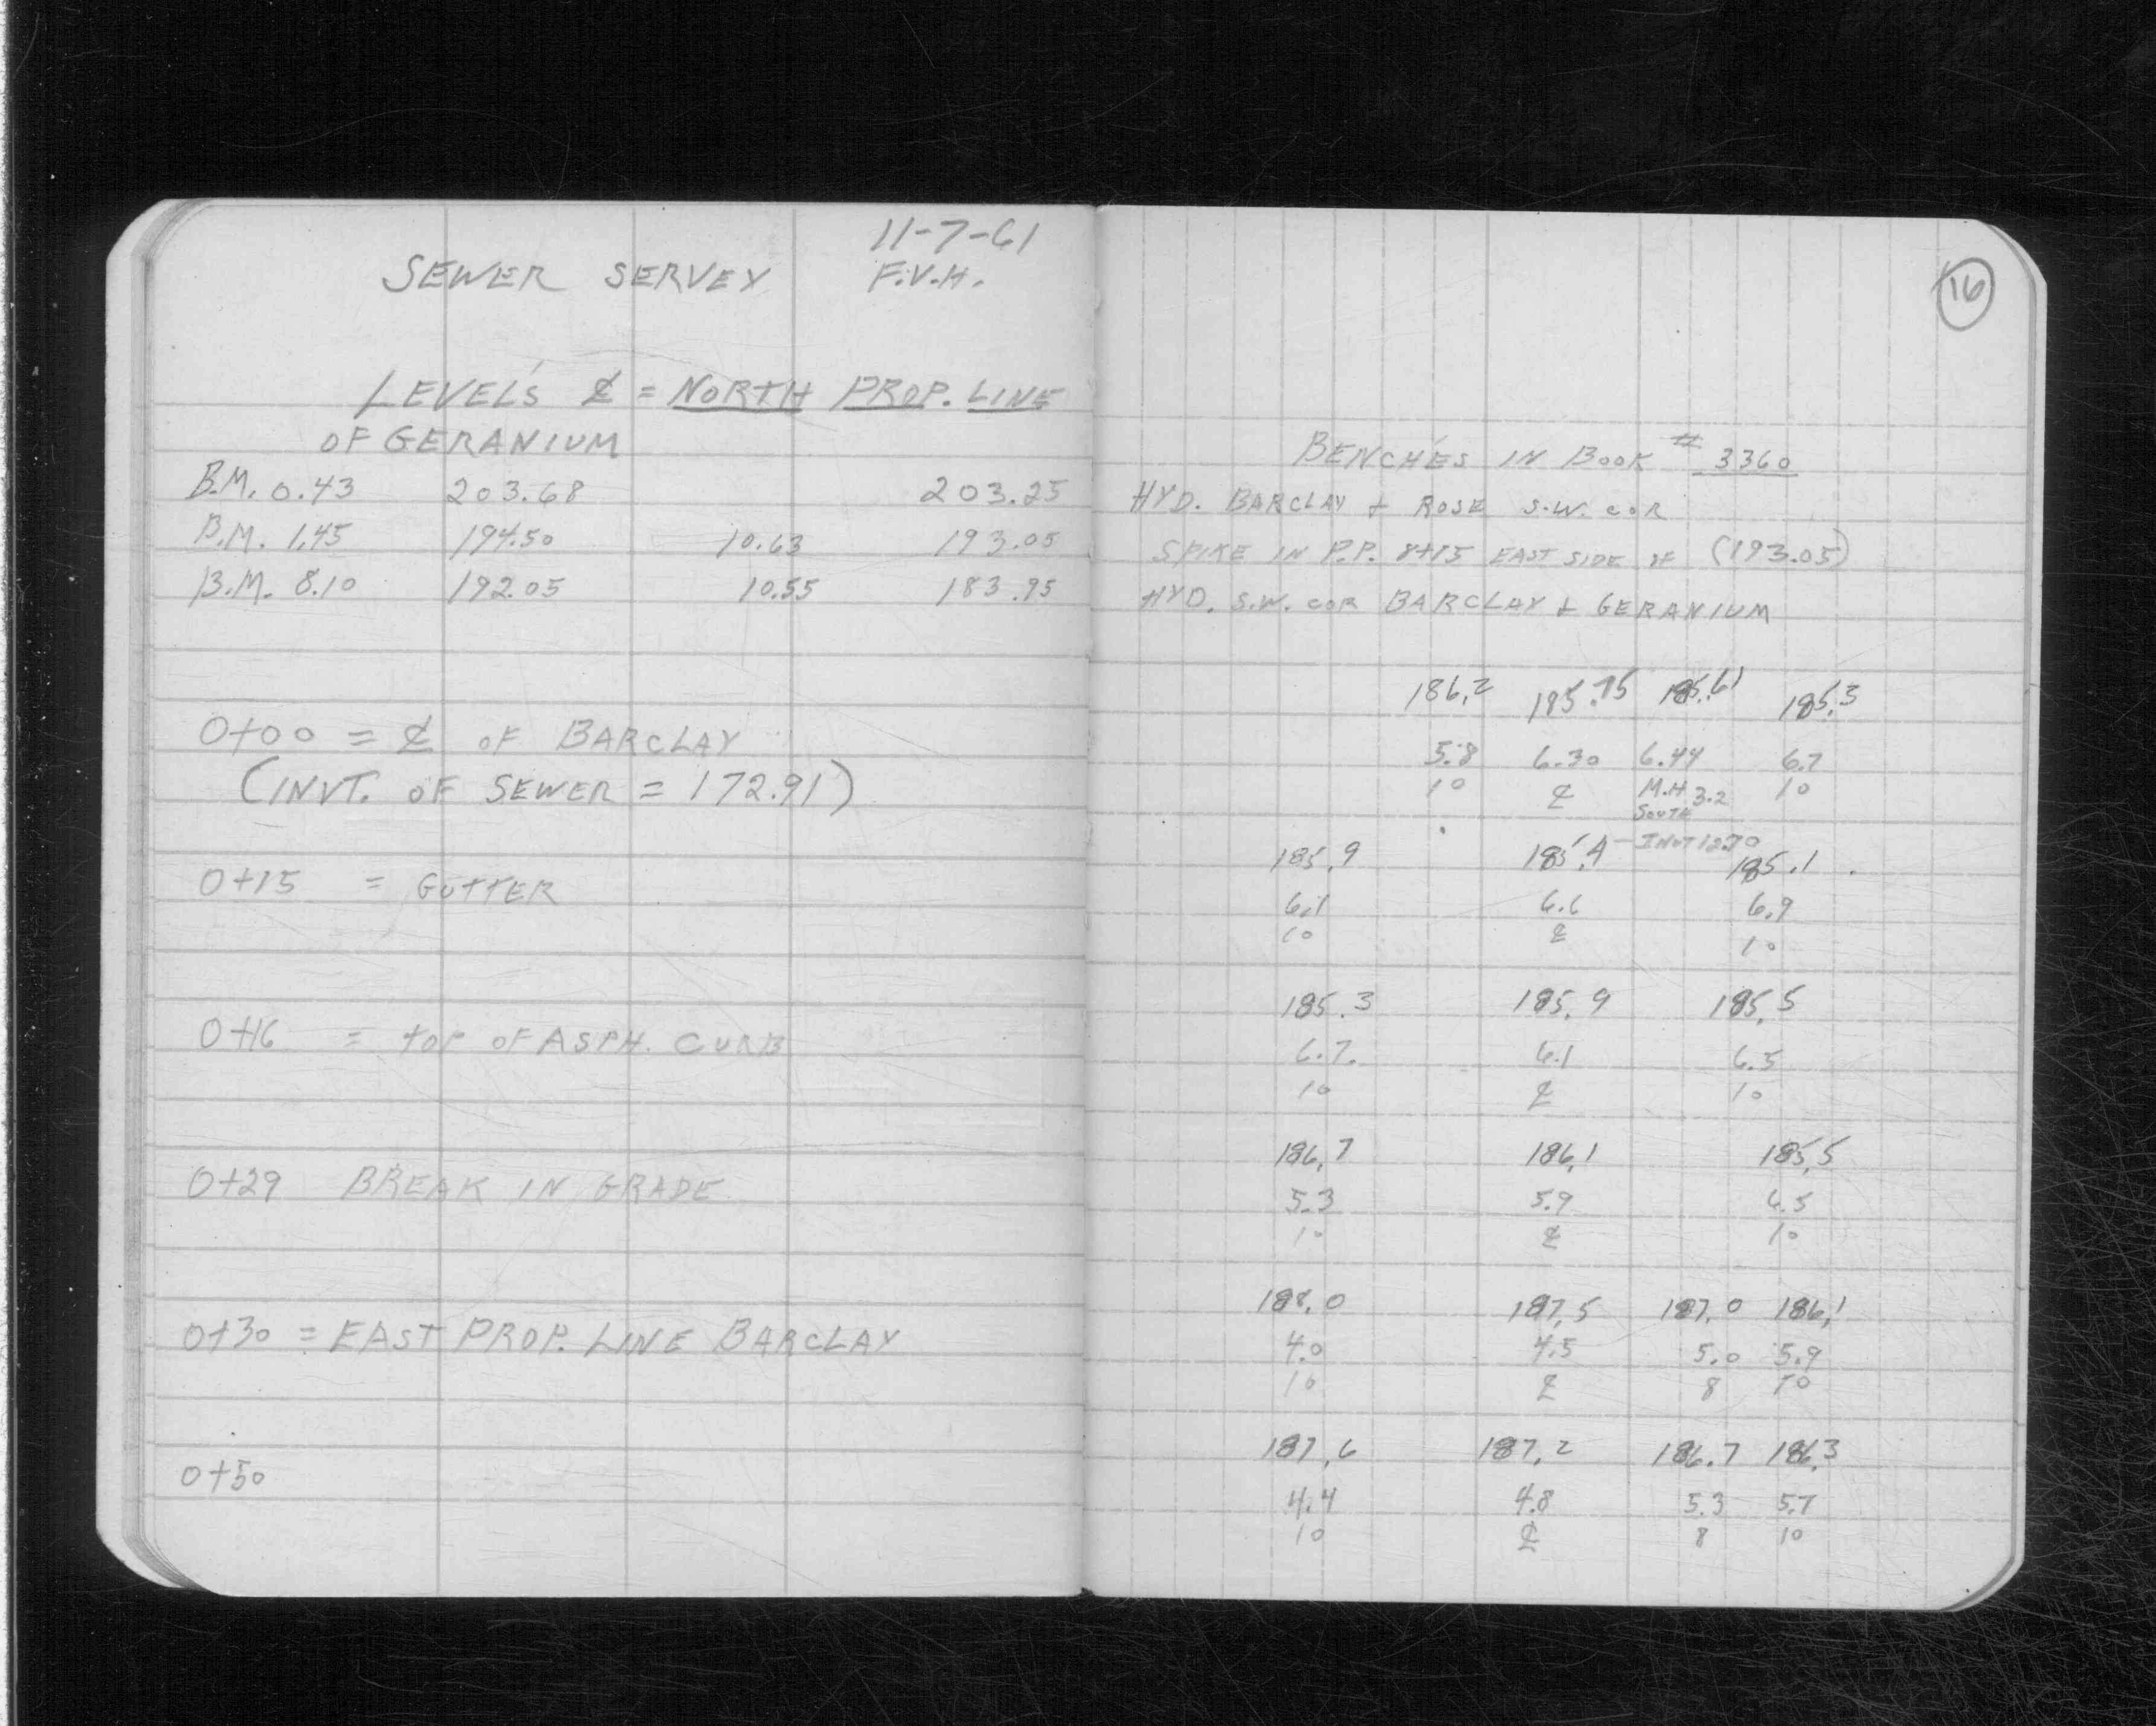 11-7-61
SEWER SERVEY F.V.H.
LEVELS ℄ = NORTH PROP. LINE
OF GERANIUM
B.M. 0.43 203.68 203.25
B.M. 1.45 194.50 10.63 193.05
B.M. 8.10 192.05 10.55 183.95
0+00 = ℄ OF BARCLAY
(INVT. OF SEWER = 172.91)
0+15 = GUTTER
0+16 = TOP OF ASPH. CURB
0+29 BREAK IN GRADE
0+30 = EAST PROP. LINE BARCLAY
0+50
16
BENCHES IN BOOK # 3360
HYD. BARCLAY + ROSE S.W. COR
SPIKE IN P.P. 8+15 EAST SIDE OF (193.05)
HYD. S.W. COR BARCLAY + GERANIUM
186.2 185.75 185.61 185.3
5.8 6.30 6.44 6.7
10 ℄ M.H. 3.2 10
SOUTH
185.9 185.4 - INVT 12.70 185.1
6.1 6.6 6.9
10 ℄ 10
185.3 185.9 185.5
6.7 6.1 6.5
10 ℄ 10
186.7 186.1 185.5
5.3 5.9 6.5
10 ℄ 10
188.0 187.5 187.0 186.1
4.0 4.5 5.0 5.9
10 ℄ 8 10
187.6 187.2 186.7 186.3
4.4 4.8 5.3 5.7
10 ℄ 8 10